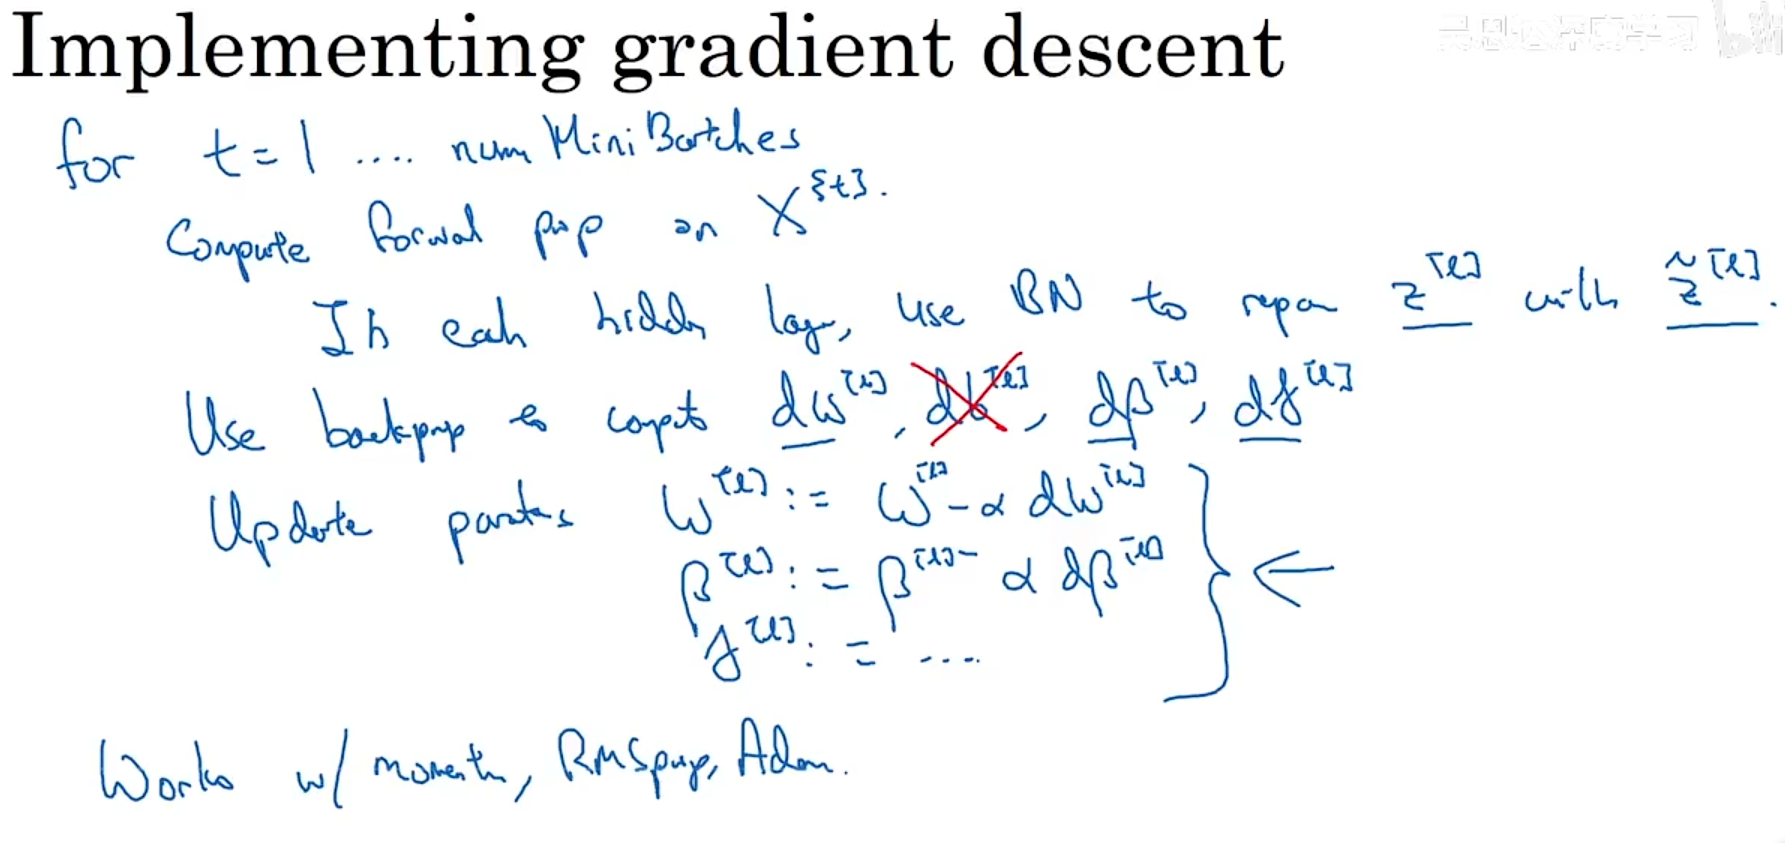 Implementing gradient descent
for t = 1 .... num Mini Batches
Compute forwal prop on X^{t}.
In each hidden lay, use BN to repa z^[l] with z̃^[l].
Use backprop to compt dw^[l], db^[l], dβ^[l], dγ^[l]
Update W^[l] := W^[l] - α dW^[l]
β^[l] := β^[l] - α dβ^[l]
γ^[l] := ....
Works w/ moment, RMSprop, Adam.